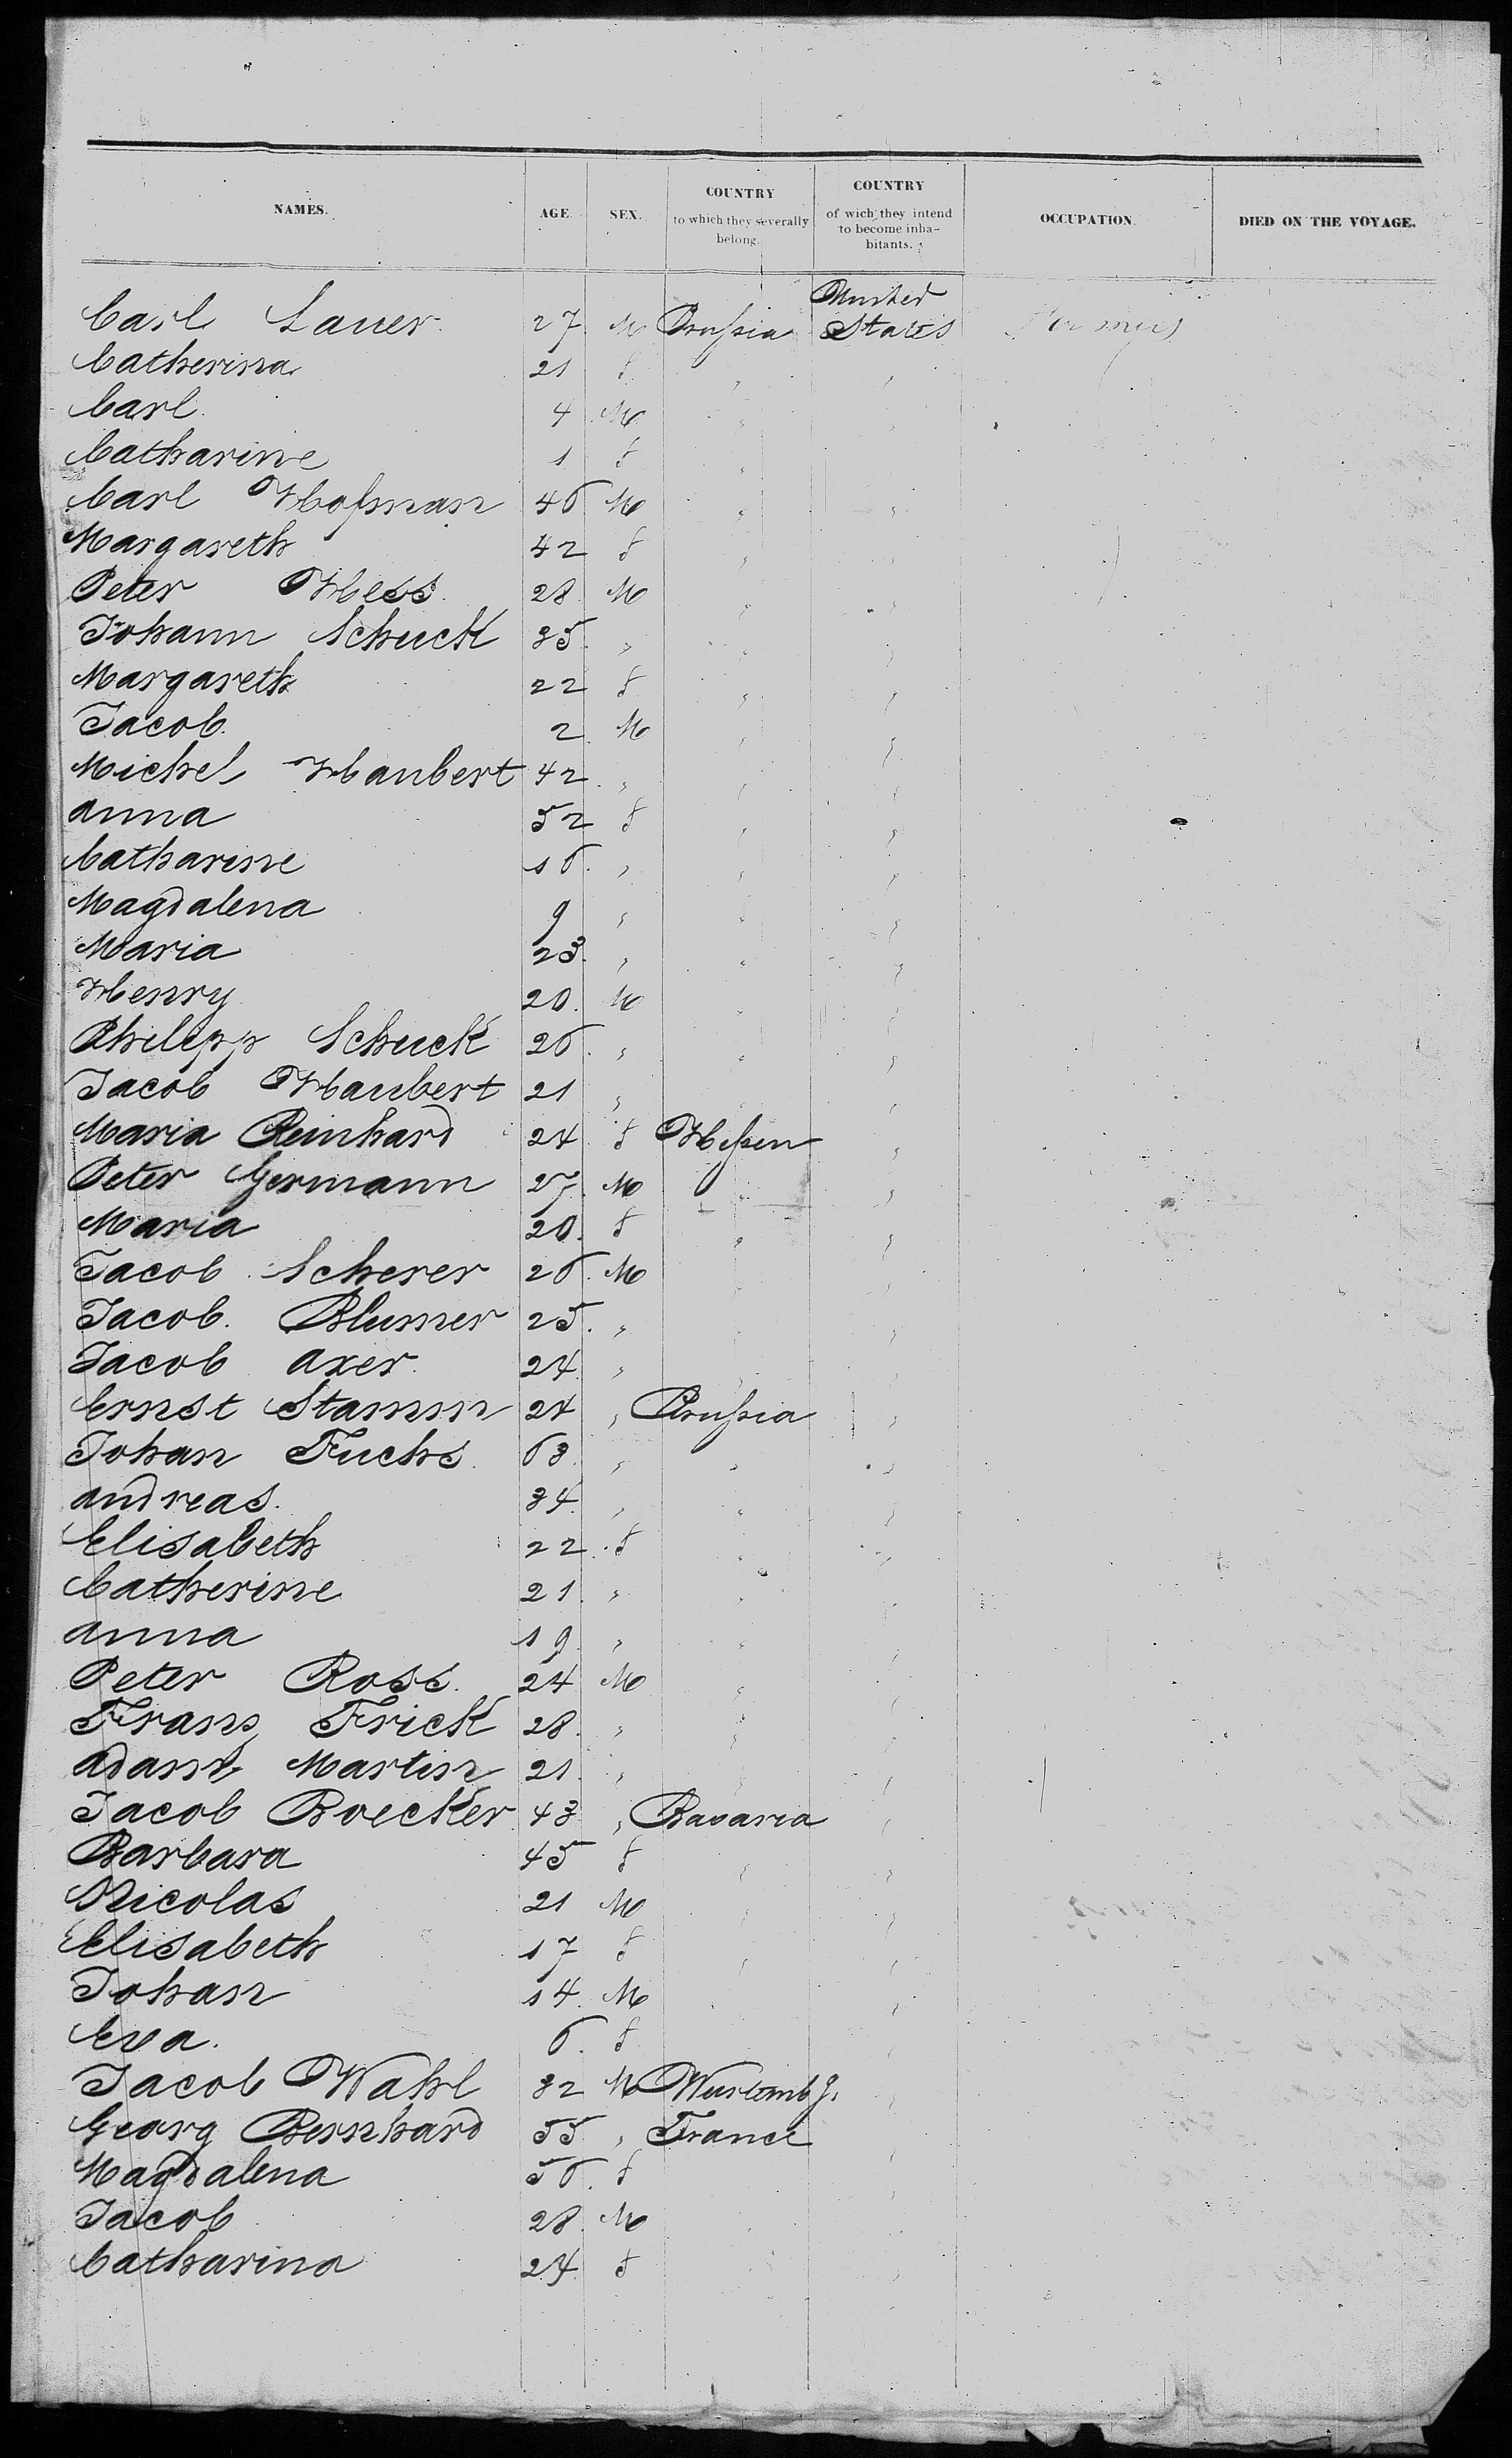 NAMES. AGE. SEX. COUNTRY to which they severally belong. COUNTRY of wich they intend to become inha- bitants. OCCUPATION. DIED ON THE VOYAGE.
Carl Lauer 27 M Prussia United States
Catherina 21 f " "
Carl 4 M " "
Catharine 1 f "
Carl Hofman 46 M " "
Margareth 42 f " "
Peter Hess 28 M " "
Johann Schuck 35 " " "
Margareth 22 f " "
Jacob 2 M " "
Michel Haubert 42 " " "
Anna 52 f " "
Catharine 16 " " "
Magdalena 9 " " "
Maria 23 " " "
Henry 20 M " "
Philipp Schuck 26 " " "
Jacob Haubert 21 " " "
Maria Reinhard 24 f Hessen "
Peter Germann 27 M " "
Maria 20 f " "
Jacob Scherer 26 M " "
Jacob Blumer 25 " " "
Jacob Axer 24 " " "
Ernst Stamm 24 " Prussia "
Johan Fuchs 63 " " "
Andreas 34 " " "
Elisabeth 22 f " "
Catherine 21 " " "
Anna 19 " " "
Peter Ross 24 M " "
Franz Frick 28 " " "
Adam Martin 21 " " "
Jacob Boecker 43 " Bavaria "
Barbara 45 f " "
Nicolas 21 M " "
Elisabeth 17 f " "
Johan 14 M " "
Eva 6 f "
Jacob Wahl 32 M Wurtembg. "
Georg Bernhard 55 " France "
Magdalena 56 f "
Jacob 28 M "
Catharina 24 f "